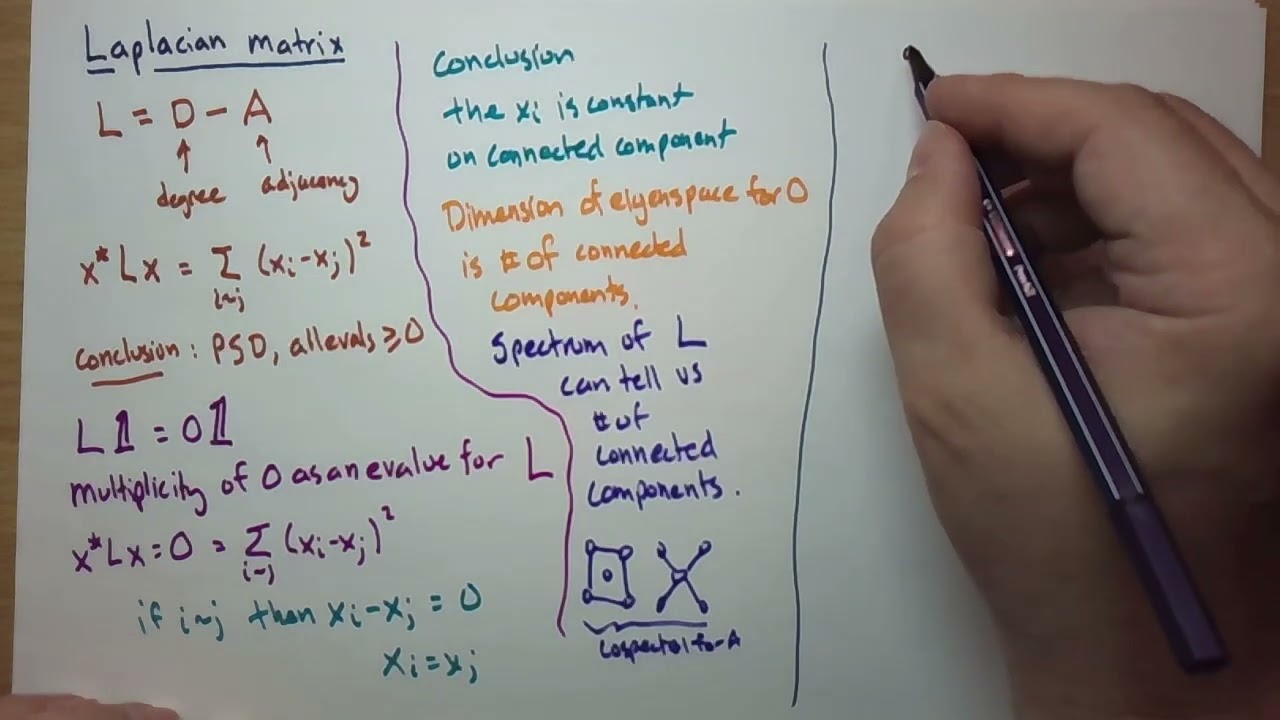 Laplacian matrix
L = D - A
degree adjacency
x* L x = Σ (xᵢ-xⱼ)²
i~j
Conclusion : PSD, all evals ≥ 0
L𝟙 = 0𝟙
multiplicity of 0 as an evalue for L
x* L x = 0 = Σ (xᵢ-xⱼ)²
i~j
if i~j then xᵢ-xⱼ = 0
xᵢ = xⱼ
Conclusion
the xᵢ is constant
on connected component
Dimension of eigenspace for 0
is # of connected
components.
Spectrum of L
can tell us
# of
connected
components.
cospectral for A